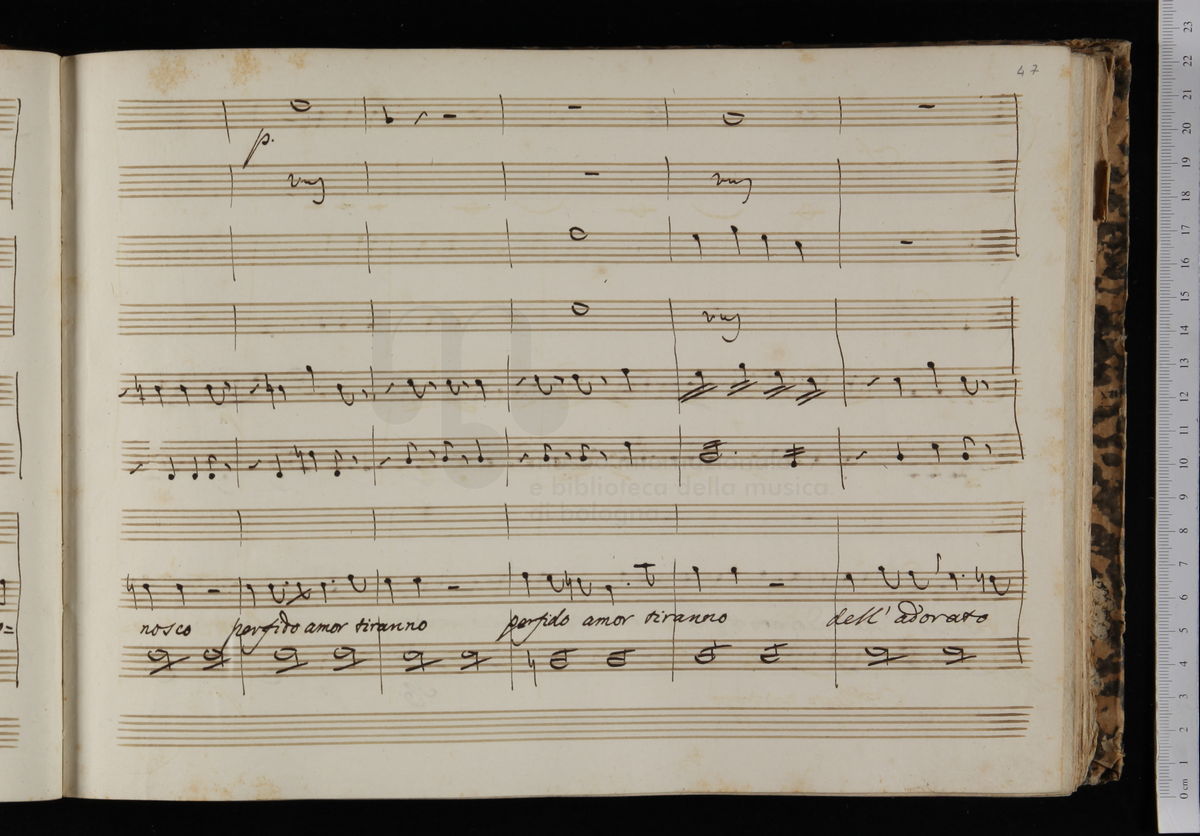 47
p.
nosco perfido amor tiranno perfido amor tiranno dell' adorato
e biblioteca della musica
di bologna
23
22
21
20
19
18
17
16
15
14
13
12
11
10
9
8
7
6
5
4
3
2
1
0 cm